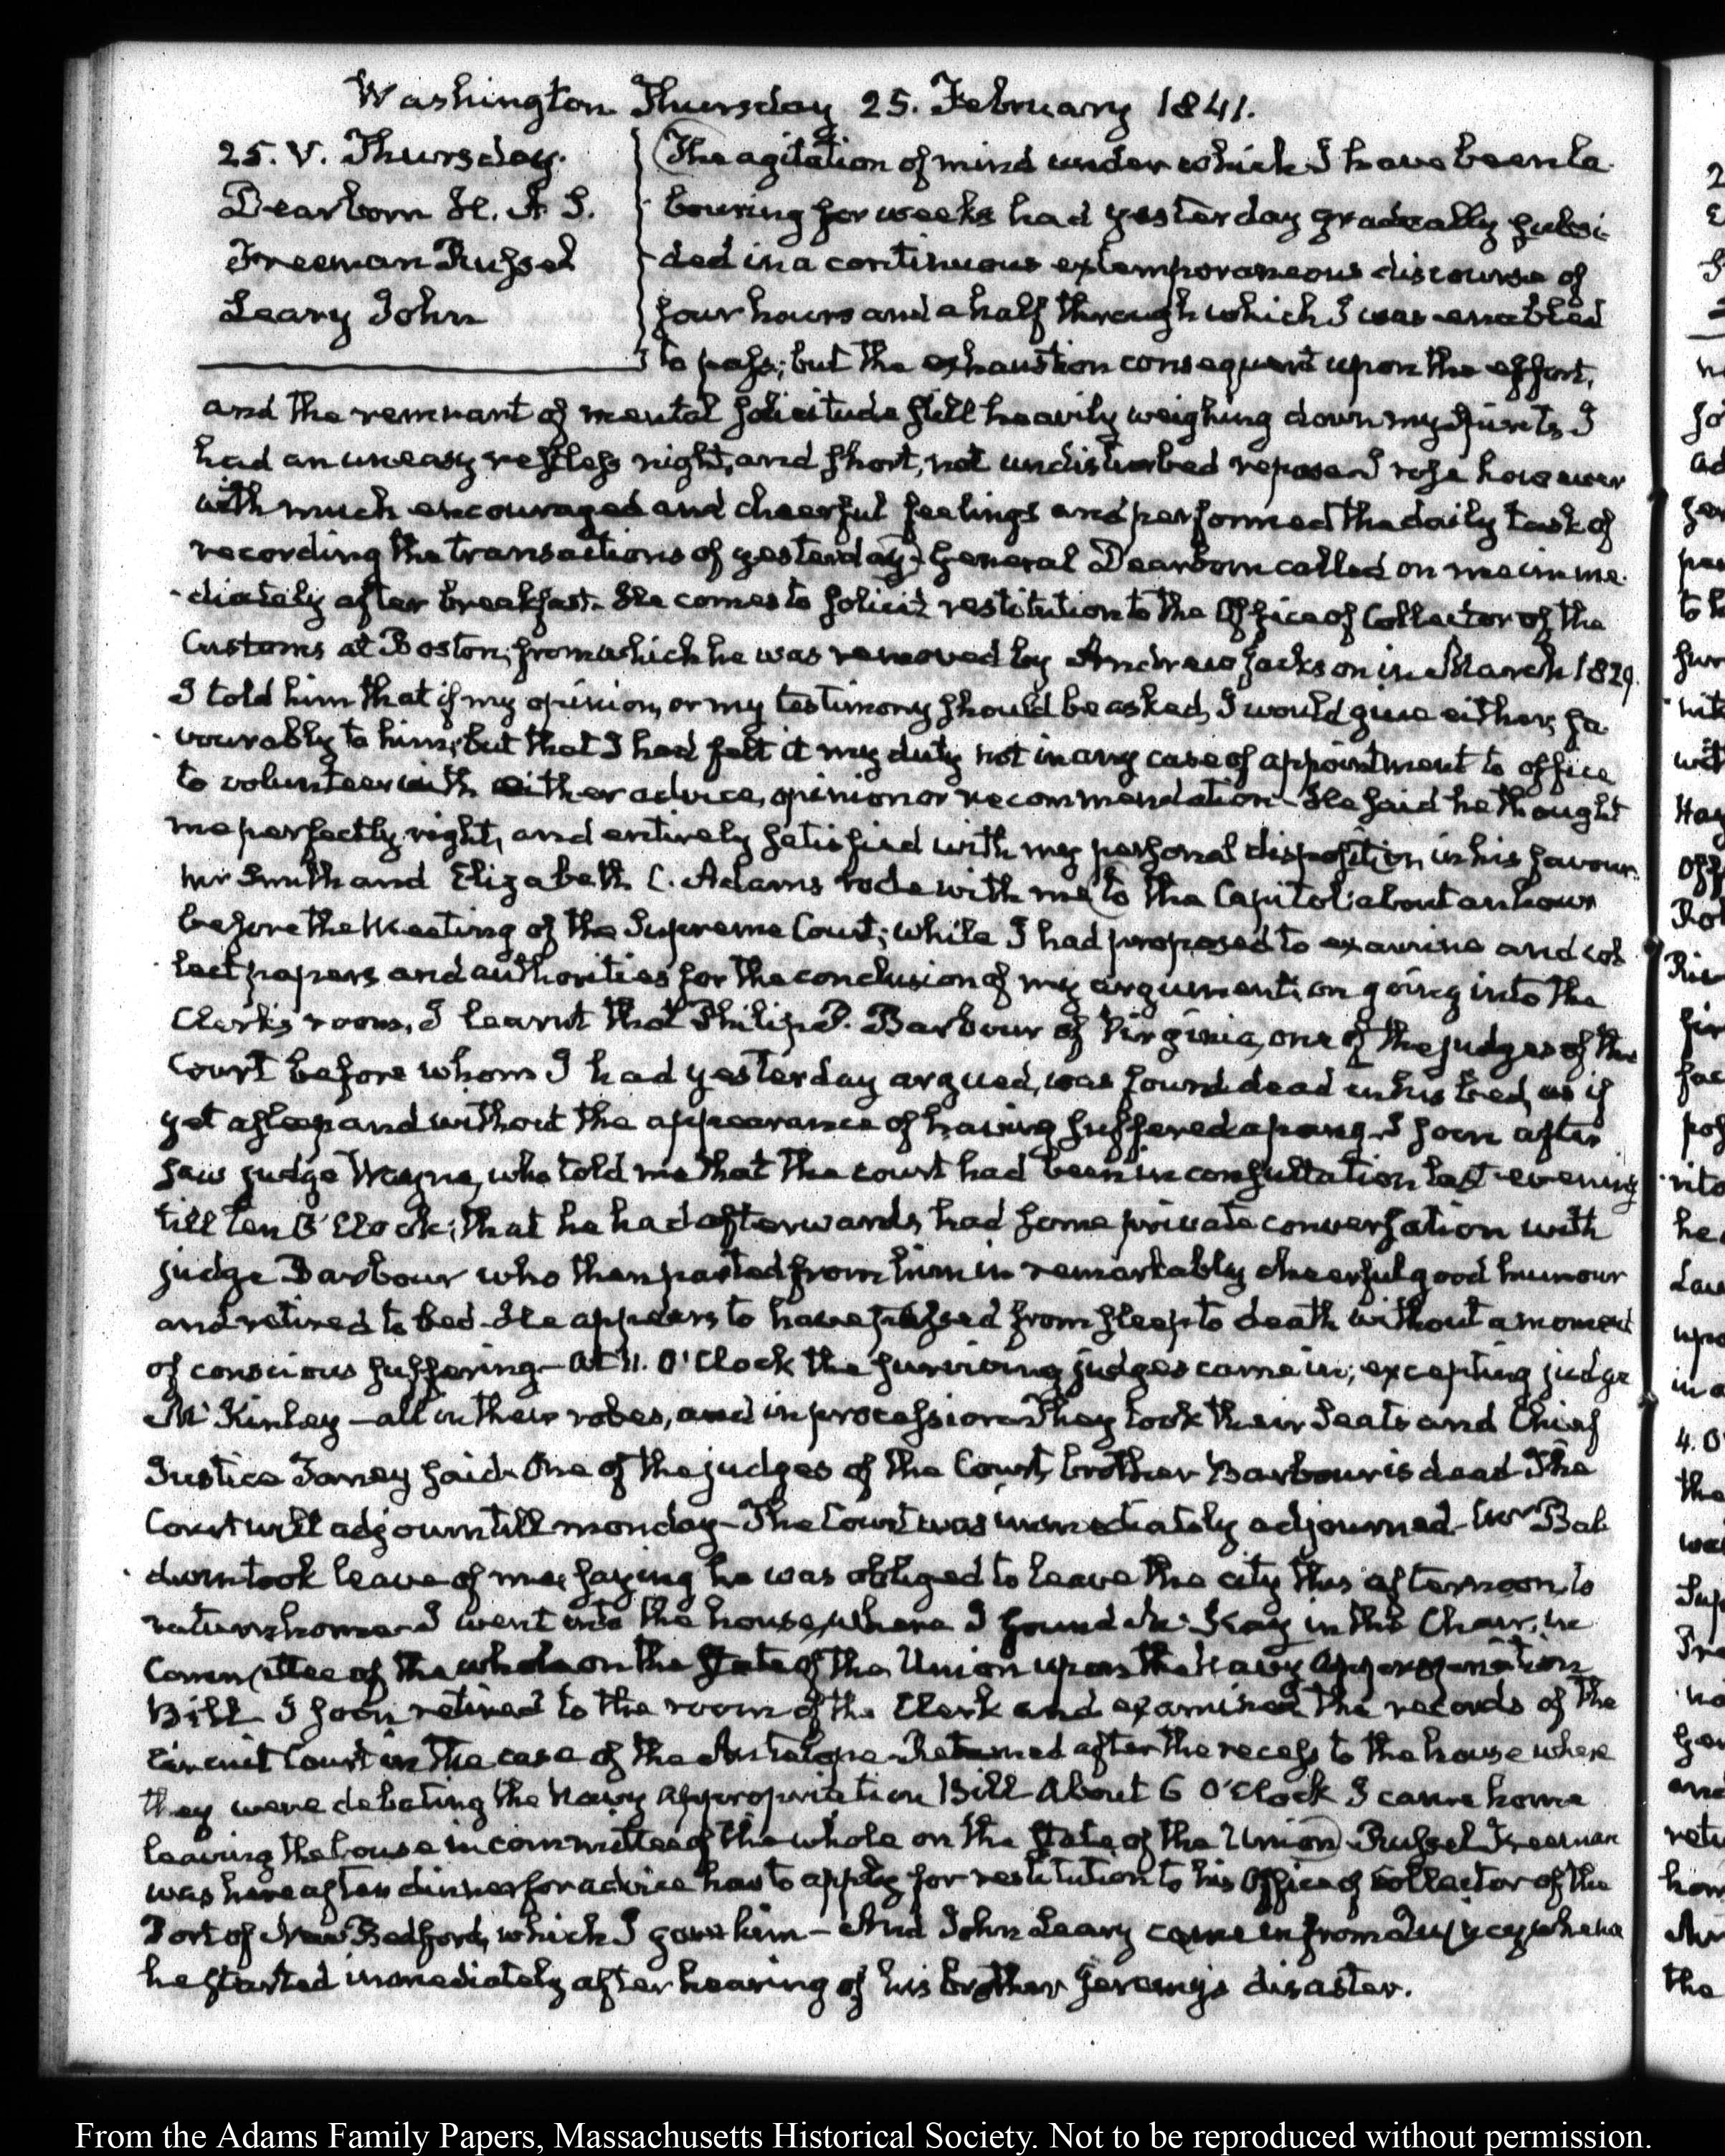 Washington Thursday 25. February 1841.
25. V. Thursday.
Dearborn H. A. S.
Freeman Russel
Leary John
The agitation of mind under which I have been la-
bouring for weeks had yesterday gradually subsi-
ded in a continuous extemporaneous discourse of
four hours and a half through which I was enabled
to pass; but the exhaustion consequent upon the effort,
and the remnant of mental solicitude still heavily weighing down my spirits, I
had an uneasy restless night, and short, not undisturbed repose. I rose however
with much encouraged and cheerful feelings and performed the daily task of
recording the transactions of yesterday. General Dearborn called on me imme-
diately after breakfast. He comes to solicit restitution to the Office of Collector of the
Customs at Boston; from which he was removed by Andrew Jackson in March 1829.
I told him that if my opinion, or my testimony should be asked, I would give either, fa-
vourably to him; but that I had felt it my duty not in any case of appointment to office
to volunteer with either advice, opinion or recommendation. He said he thought
me perfectly right, and entirely satisfied with my personal disposition in his favour.
Mr Smith and Elizabeth C. Adams rode with me to the Capitol about an hour
before the Meeting of the Supreme Court; while I had proposed to examine and col-
lect papers and authorities for the conclusion of my argument; on going into the
Clerk's room, I learnt that Philip P. Barbour of Virginia, one of the judges of the
Court before whom I had yesterday argued, was found dead in his bed, as if
yet asleep and without the appearance of having suffered a pang. I soon after
saw judge Wayne, who told me that the court had been in consultation last evening
till ten O'Clock; that he had afterwards had some private conversation with
judge Barbour who then parted from him in remarkably cheerful good humour
and retired to bed. He appears to have passed from sleep to death without a moment
of conscious suffering— At 11. O'Clock the surviving judges came in; excepting judge
Mc Kinley—all in their robes, and in procession. They took their seats and Chief
Justice Taney said. One of the judges of the Court, brother Barbour is dead. The
Court will adjourn till monday— The Court was immediately adjourned. Mr Bal-
dwin took leave of me, saying he was obliged to leave the city this afternoon, to
return home. I went into the house, where I found in the Chair, in
Committee of the whole on the State of the Union upon the Navy Appropriation
Bill. I soon retired to the room of the Clerk and examined the records of the
Circuit Court in the case of the Antelope. Returned after the recess to the house where
they were debating the Navy Appropriation Bill. About 6 O'Clock I came home
leaving the house in committee of the whole on the State of the Union. Russel Freeman
was here after dinner for advice how to apply for restitution to his Office of Collector of the
Port of New Bedford, which I gave him— And John Leary came in from Quincy whence
he started immediately after hearing of his brother Jeremy's disaster.
From the Adams Family Papers, Massachusetts Historical Society. Not to be reproduced without permission.